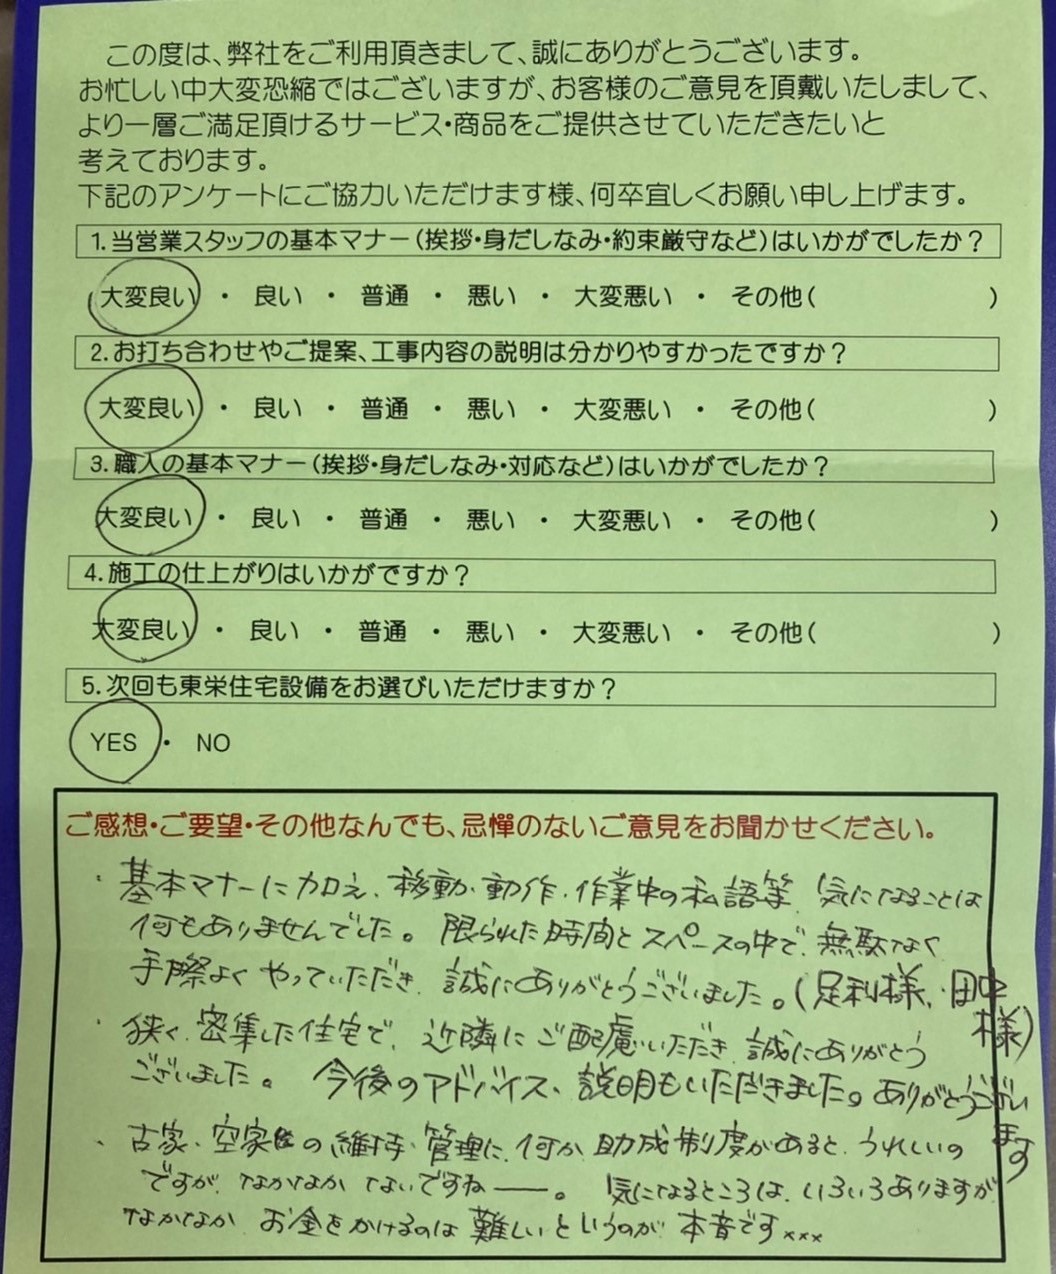 この度は、弊社をご利用頂きまして、誠にありがとうございます。
お忙しい中大変恐縮ではございますが、お客様のご意見を頂戴いたしまして、
より一層ご満足頂けるサービス・商品をご提供させていただきたいと
考えております。
下記のアンケートにご協力いただけます様、何卒宜しくお願い申し上げます。
1.当営業スタッフの基本マナー(挨拶・身だしなみ・約束厳守など)はいかがでしたか?
大変良い ・ 良い ・ 普通 ・ 悪い ・ 大変悪い ・ その他( )
2.お打ち合わせやご提案、工事内容の説明は分かりやすかったですか?
大変良い ・ 良い ・ 普通 ・ 悪い ・ 大変悪い ・ その他( )
3.職人の基本マナー(挨拶・身だしなみ・対応など)はいかがでしたか?
大変良い ・ 良い ・ 普通 ・ 悪い ・ 大変悪い ・ その他( )
4.施工の仕上がりはいかがですか?
大変良い ・ 良い ・ 普通 ・ 悪い ・ 大変悪い ・ その他( )
5.次回も東栄住宅設備をお選びいただけますか?
YES ・ NO
ご感想・ご要望・その他なんでも、忌憚のないご意見をお聞かせください。
・基本マナーに加え、移動、動作、作業中の私語等、気になることは
何もありませんでした。限られた時間とスペースの中で、無駄なく
手際よくやっていただき、誠にありがとうございました。(足利様、田中
様)
・狭く、密集した住宅で、近隣にご配慮いただき、誠にありがとう
ございました。今後のアドバイス、説明もいただきました。ありがとうござい
ます
、古家、空家の維持、管理に、何か助成制度があると、うれしいの
ですが、なかなかないですねー。気になるところは、いろいろありますが、
なかなかお金をかけるのは難しいというのが本音です×××